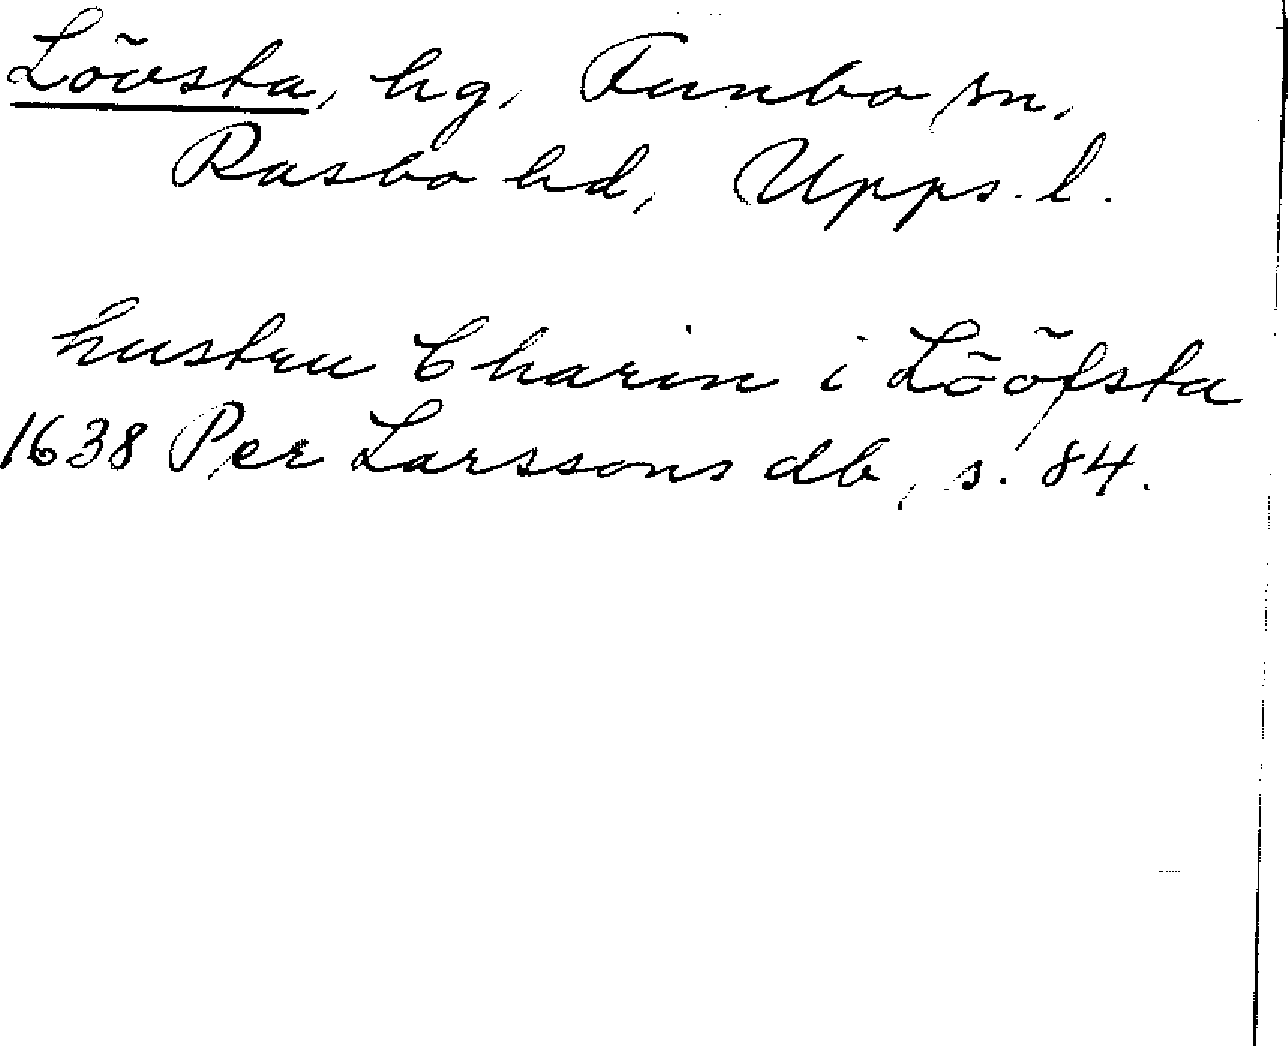 Lövsta, hg, Funbo sn,
Rasbo hd, Upps. l.
hustru Charin i Löõfsta
1638 Per Larssons db, s. 84.